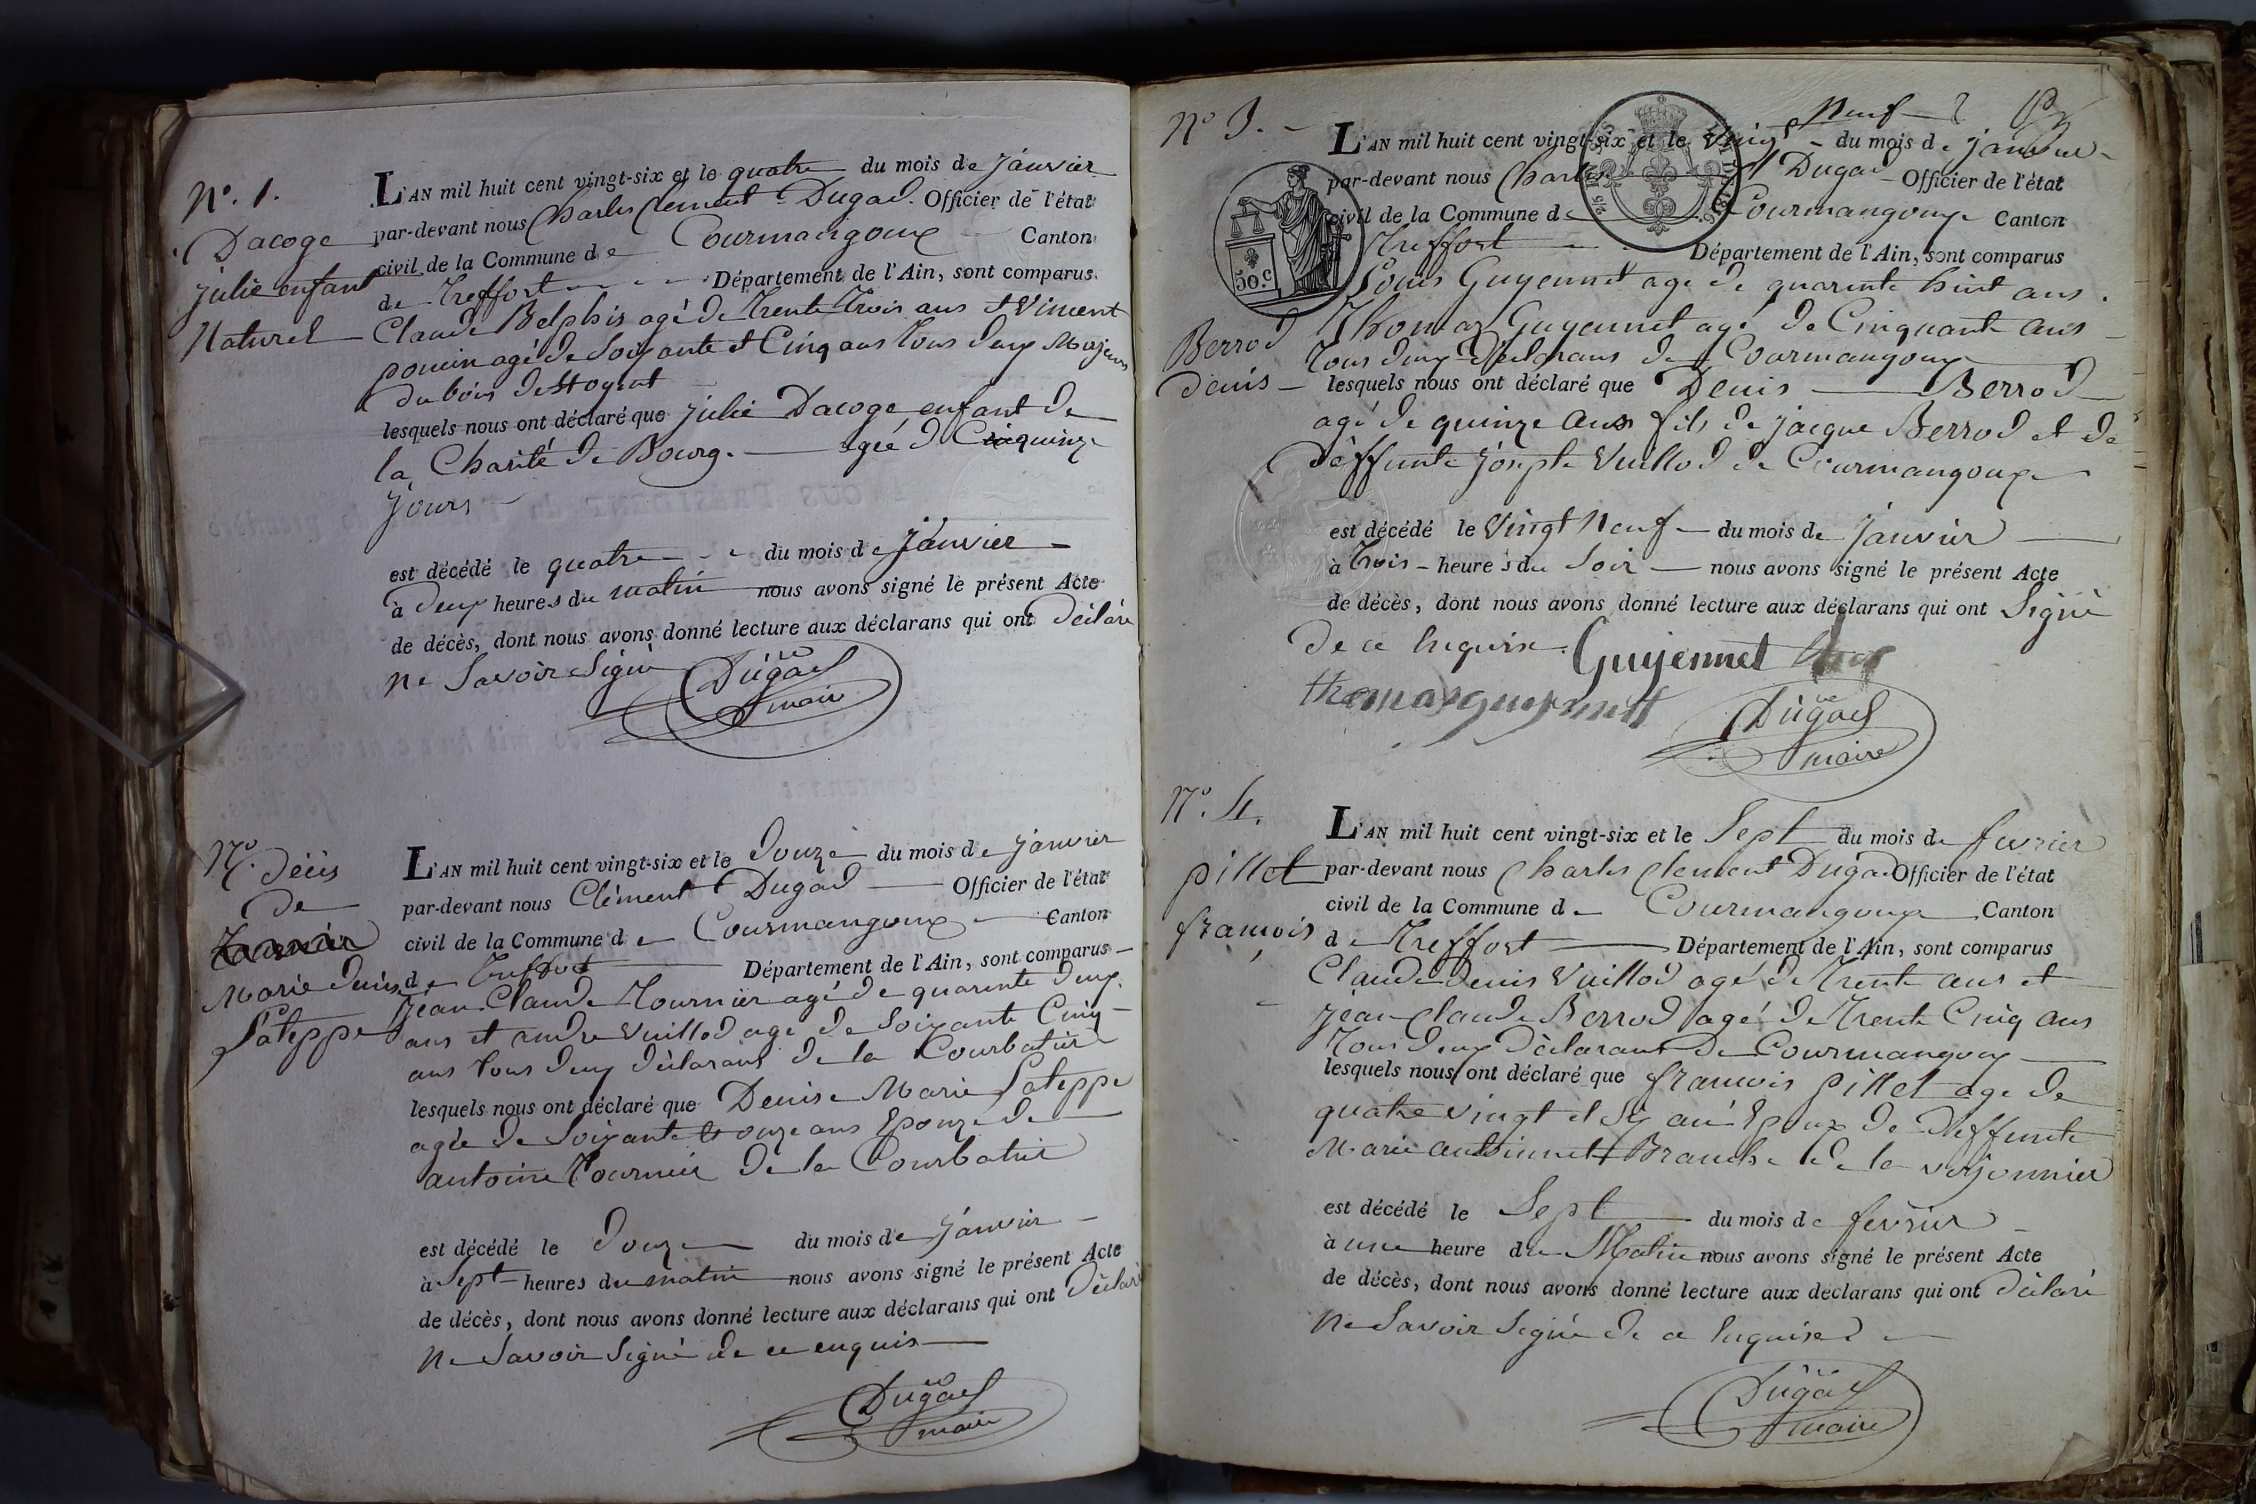 N.° 1.
Dacoge
julie enfant
Naturel
L'AN mil huit cent vingt-six et le quatre du mois de janvier
par-devant nous Charles Clement Dugad. Officier de l'état
civil de la Commune de Courmangoux Canton
de Treffort Département de l'Ain, sont comparus
Claude Belphis agé de trente trois ans et Vincent
poncin agé de Soixante et Cinq ans tous deux Majeurs
du bois de
lesquels nous ont déclaré que julie Dacoge enfant de
la Charité de Bourg. agée de quinze
jours
est décédé le quatre du mois de janvier
à deux heures du matin nous avons signé le présent Acte
de décès, dont nous avons donné lecture aux déclarans qui ont déclaré
ne Savoir Signé
Dugad
maire
N.° décès
de
Marie denise
Lateppe
L'AN mil huit cent vingt-six et le douze du mois de janvier
par-devant nous Clément Dugad Officier de l'état
civil de la Commune de Courmangoux Canton
de Treffort Département de l'Ain, sont comparus
jean Claude Tournier agé de quarente deux
ans et andre Vuillod age de Soixante Cinq
ans tous deux déclarant de la Courbatiere
lesquels nous ont déclaré que Denise Marie Lateppe
agée de Soixante et onze ans Epouze de
antoine Tournier de la Courbatire
est décédé le douze du mois de janvier
à Sept heures du matin nous avons signé le présent Acte
de décès, dont nous avons donné lecture aux déclarans qui ont déclaré
ne Savoir Signé de ce enquis
Dugad
maire
N° 3.
Berrod
denis
50 c
L'AN mil huit cent vingt-six et le Vingt Neuf du mois de janvier
par-devant nous Charles Dugad Officier de l'état
civil de la Commune de Courmangoux Canton
Treffort Département de l'Ain, sont comparus
Louis Guyennet age de quarente huit ans
Thomas Guyennet agé de Cinquante ans
tous deux déclarans de Courmangoux
lesquels nous ont déclaré que Denis Berrod
agé de quinze ans fils de jacque Berrod et de
déffunte josepte Vuillod de Courmangoux
est décédé le Vingt Neuf du mois de janvier
à trois heures du Soir nous avons signé le présent Acte
de décès, dont nous avons donné lecture aux déclarans qui ont Signé
de ce Enquise. Guyennet
thomas guyennet
Dugad
maire
N° 4.
pillet
francois
L'AN mil huit cent vingt-six et le Sept du mois de fevrier
par-devant nous Charles Clement Dugad Officier de l'état
civil de la Commune de Courmangoux Canton
de Treffort Département de l'Ain, sont comparus
Claude Denis Vuillod agé de trente ans et
jean Claude Berrod agé de trente Cinq ans
tous deux déclarant de Courmangoux
lesquels nous ont déclaré que francois pillet age de
quatre vingt et Six ans Epoux de deffunte
Marie antoinnette Branche de la verjonnier
est décédé le Sept du mois de fevrier
à une heure du Matin nous avons signé le présent Acte
de décès, dont nous avons donné lecture aux déclarans qui ont déclaré
ne Savoir Signé de ce Enquised
Dugad
maire